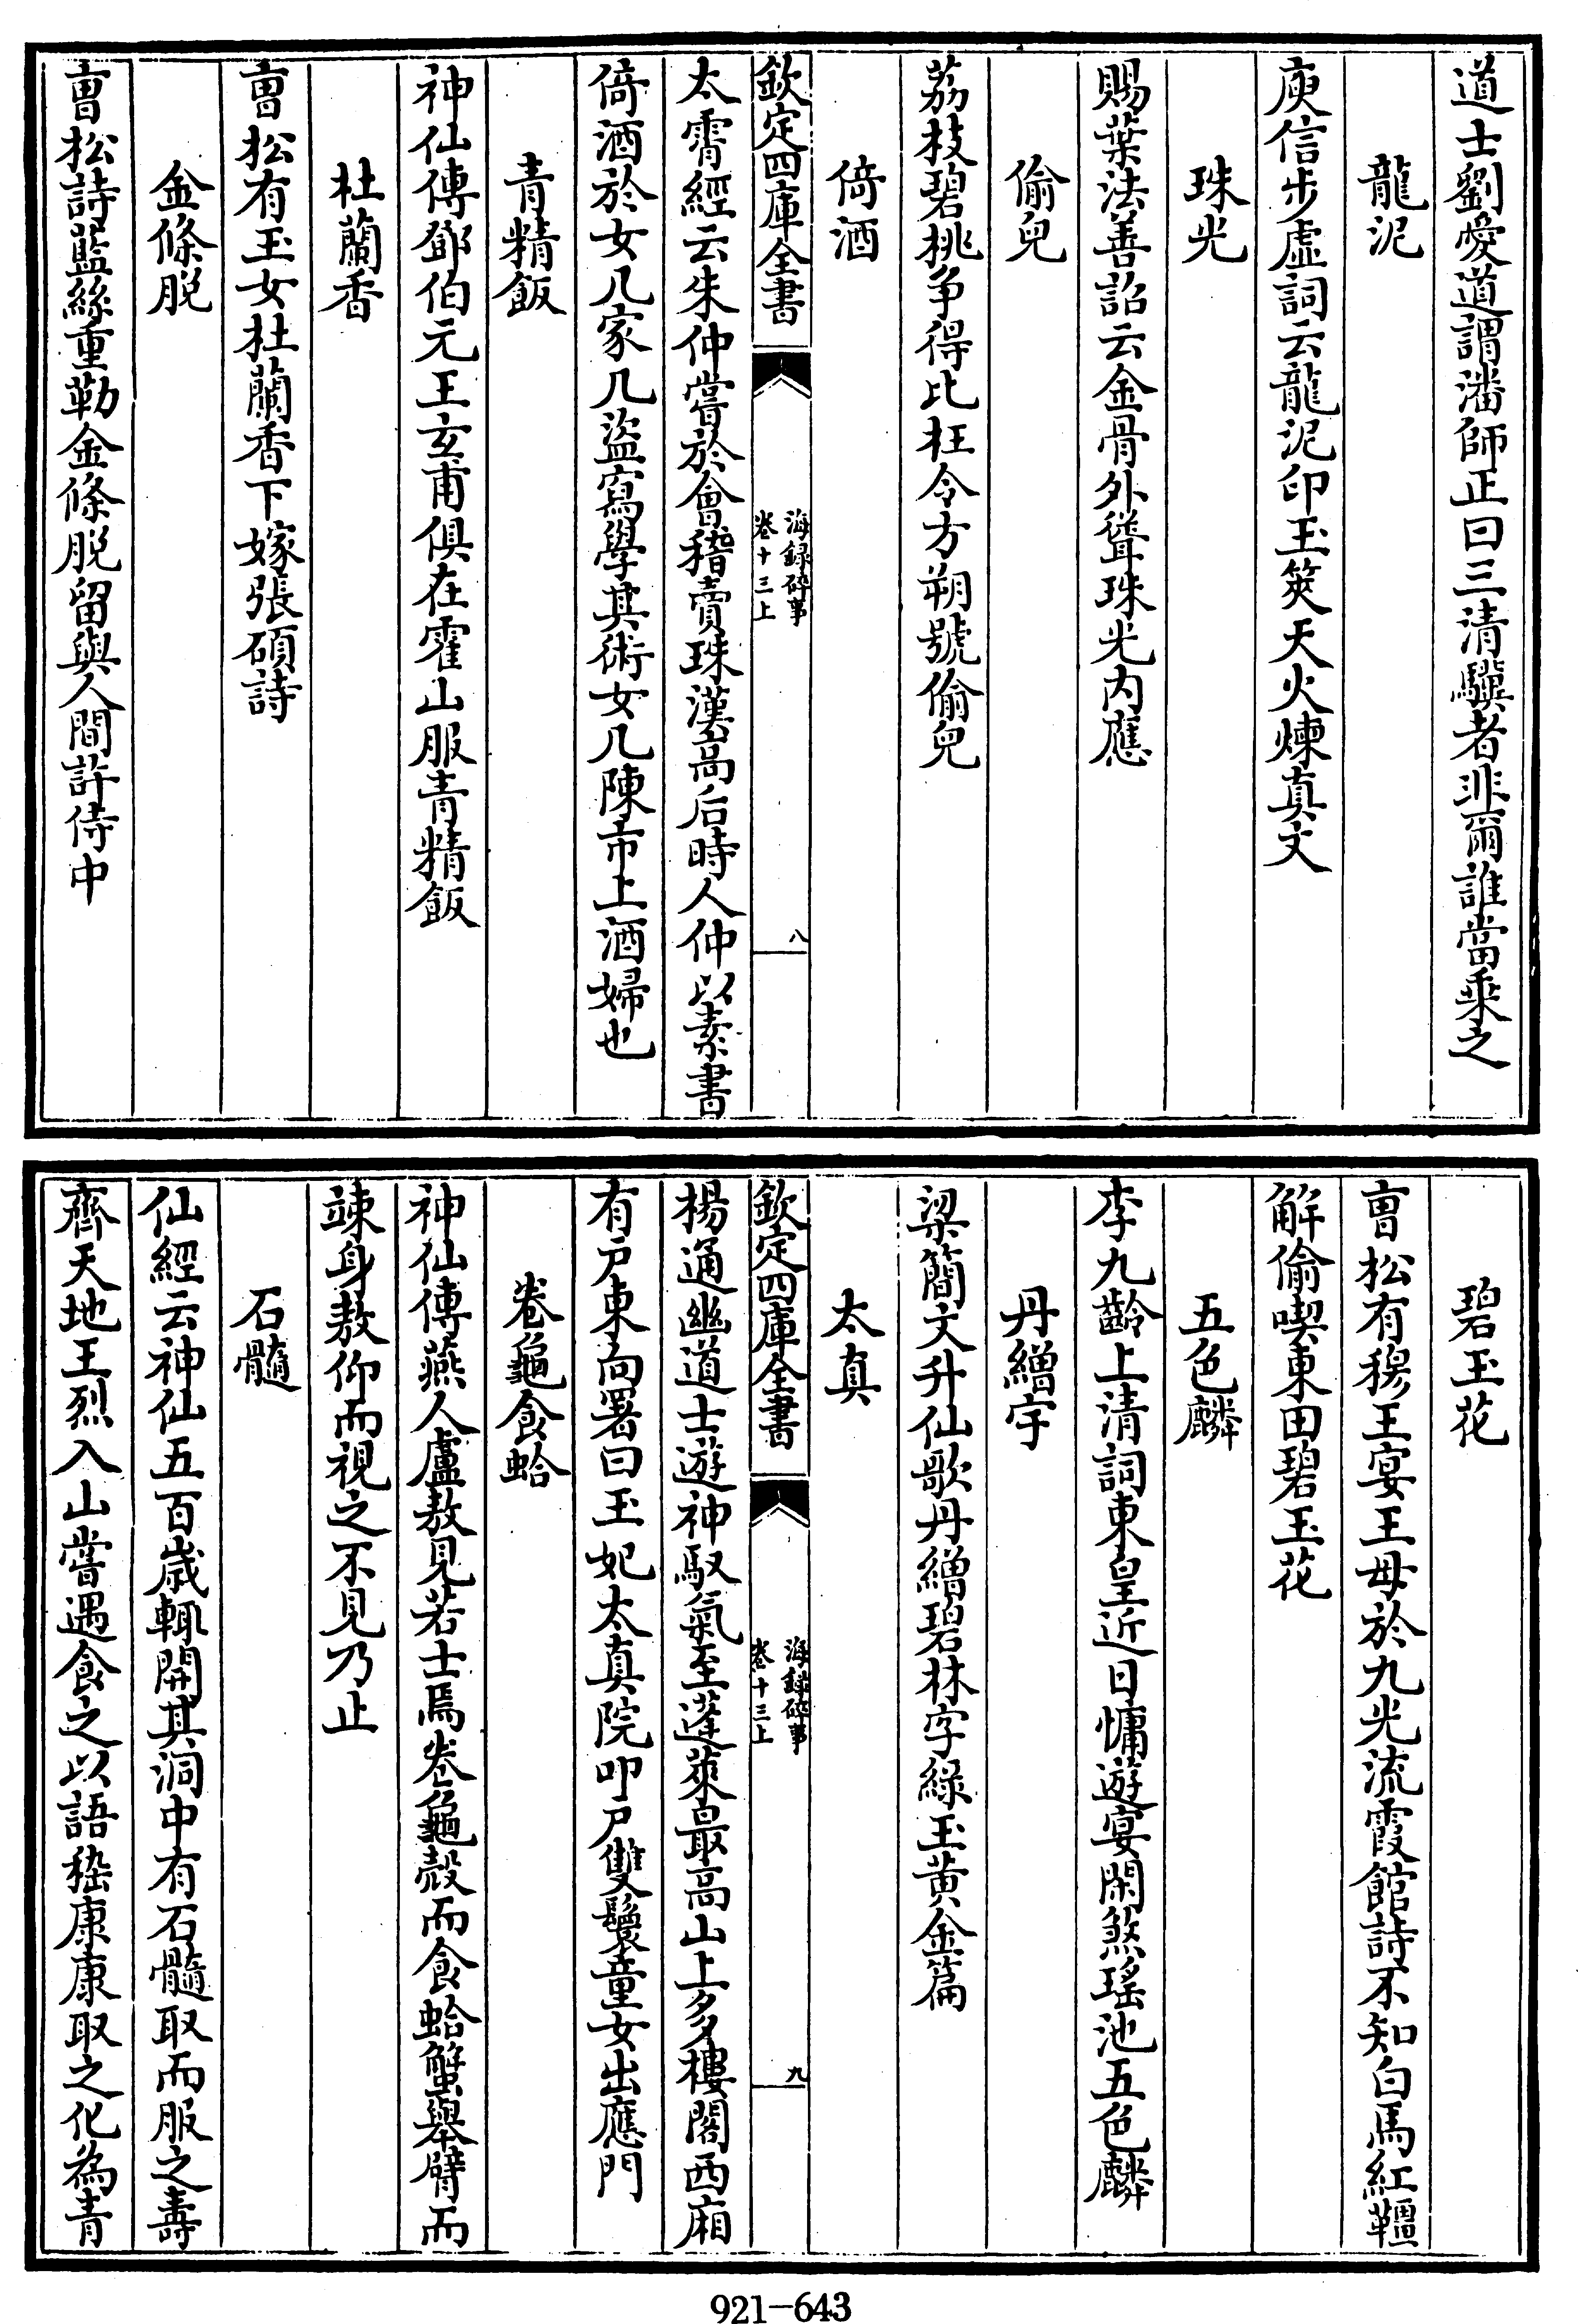 道士劉愛道謂潘師正曰三清驥者非爾誰當乘之
龍泥
庾信步虛詞云龍泥印玉筴天火煉真文
珠光
賜葉法善詔云金骨外聳珠光内應
偷兒
荔枝碧桃争得比枉令方朔號偷兒
倚酒
欽定四庫全書
海録碎事
卷十三上
八
太霄經云朱仲嘗於會稽賣珠漢高后時人仲以素書
倚酒於女几家几盜寫學其術女几陳市上酒婦也
青精飯
神仙傳鄧伯元王玄甫俱在霍山服青精飯
杜蘭香
曹松有玉女杜蘭香下嫁張碩詩
金條脱
曹松詩藍絲重勒金條脱留與人間許侍中
碧玉花
曹松有穆王宴王母於九光流霞館詩不知白馬紅韁
解偷喫東田碧玉花
五色麟
李九齡上清詞東皇近日慵遊宴閑煞瑤池五色麟
丹繒字
梁簡文升仙歌丹繒碧林字綠玉黄金篇
太真
欽定四庫全書
海録碎事
卷十三上
九
楊通幽道士遊神馭氣至蓬萊最高山上多樓閣西廂
有户東向署曰玉妃太真院叩户雙鬟童女出應門
卷龜食蛤
神仙傳燕人盧敖見若士焉卷龜殻而食蛤蟹舉臂而
竦身敖仰而視之不見乃止
石髓
仙經云神仙五百嵗輒開其洞中有石髓取而服之壽
齊天地王烈入山嘗遇食之以語嵇康康取之化為青
921-643